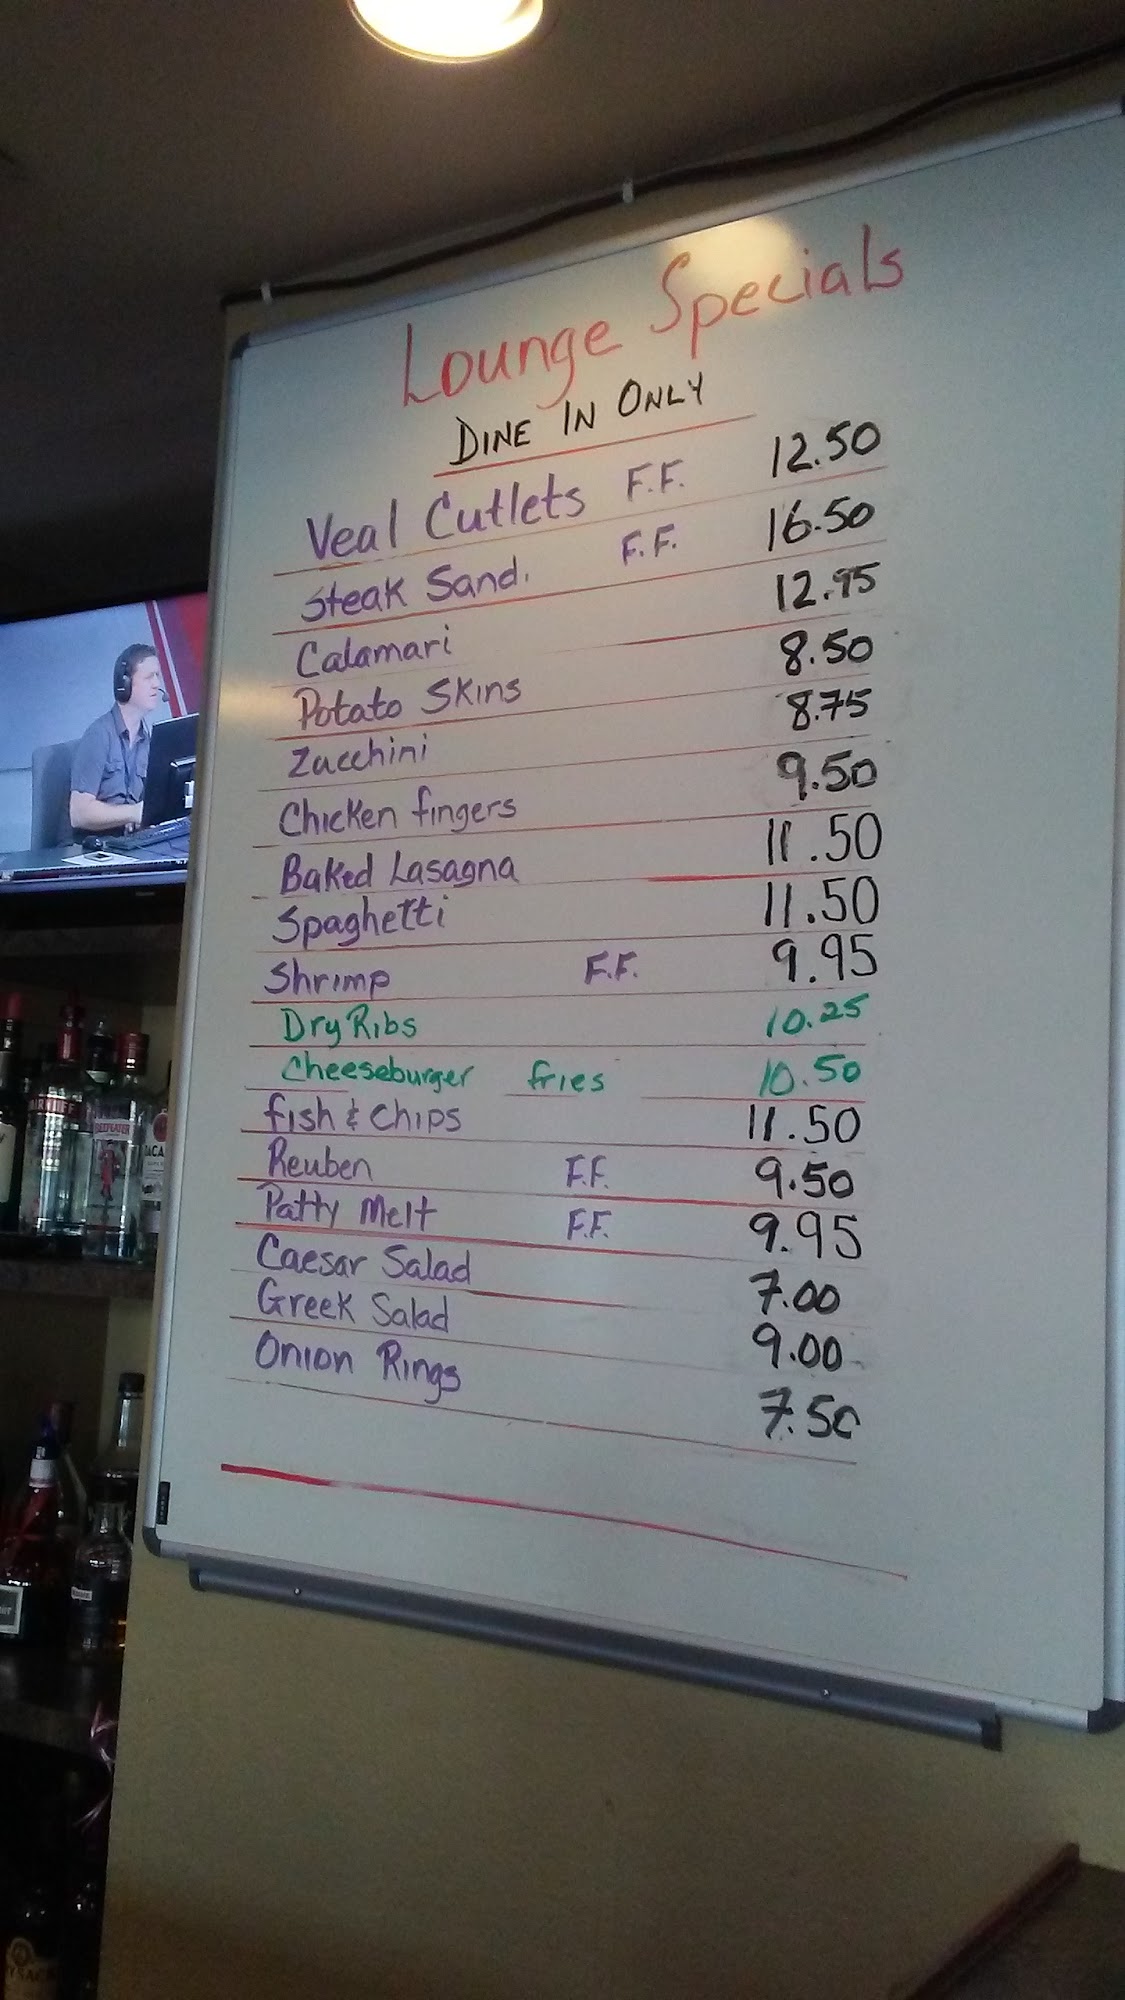 Lounge Specials
DINE IN ONLY
Veal Cutlets F.F. 12.50
Steak Sand. F.F. 16.50
Calamari 12.95
Potato Skins 8.50
Zucchini 8.75
Chicken fingers 9.50
Baked Lasagna 11.50
Spaghetti 11.50
Shrimp F.F. 9.95
Dry Ribs 10.25
Cheeseburger fries 10.50
fish & Chips 11.50
Reuben F.F. 9.50
Patty Melt F.F. 9.95
Caesar Salad 7.00
Greek Salad 9.00
Onion Rings 7.50
BEEFEATER